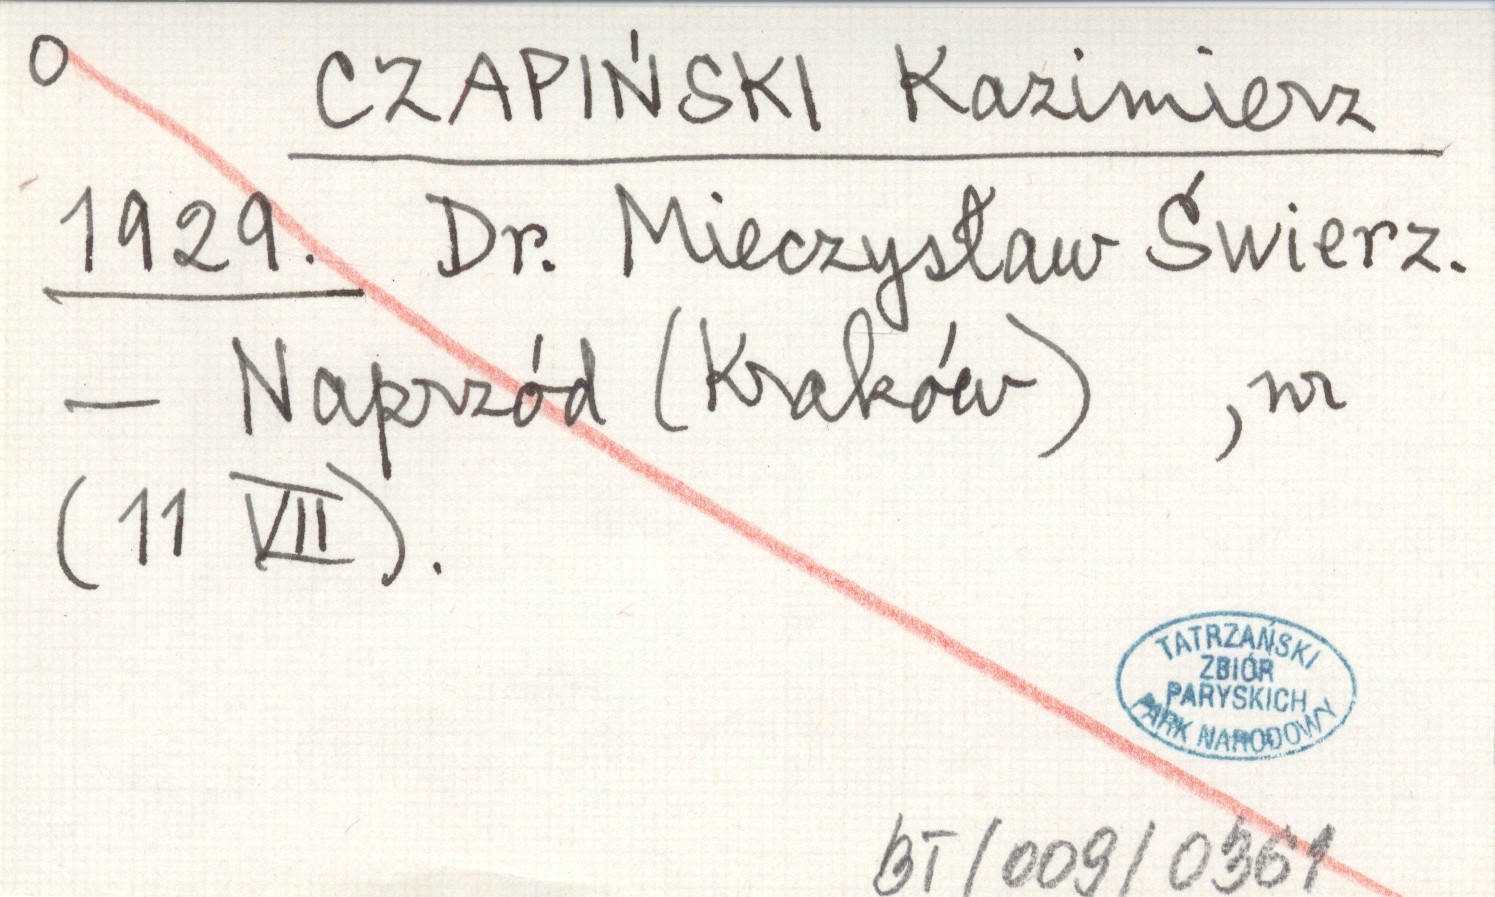 O CZAPIŃSKI Kazimierz
1929. Dr. Mieczysław Świerz.
— Naprzód (Kraków) , nr
(11 VII).
TATRZAŃSKI
ZBIÓR
PARYSKICH
PARK NARODOWY
BT/009/0361